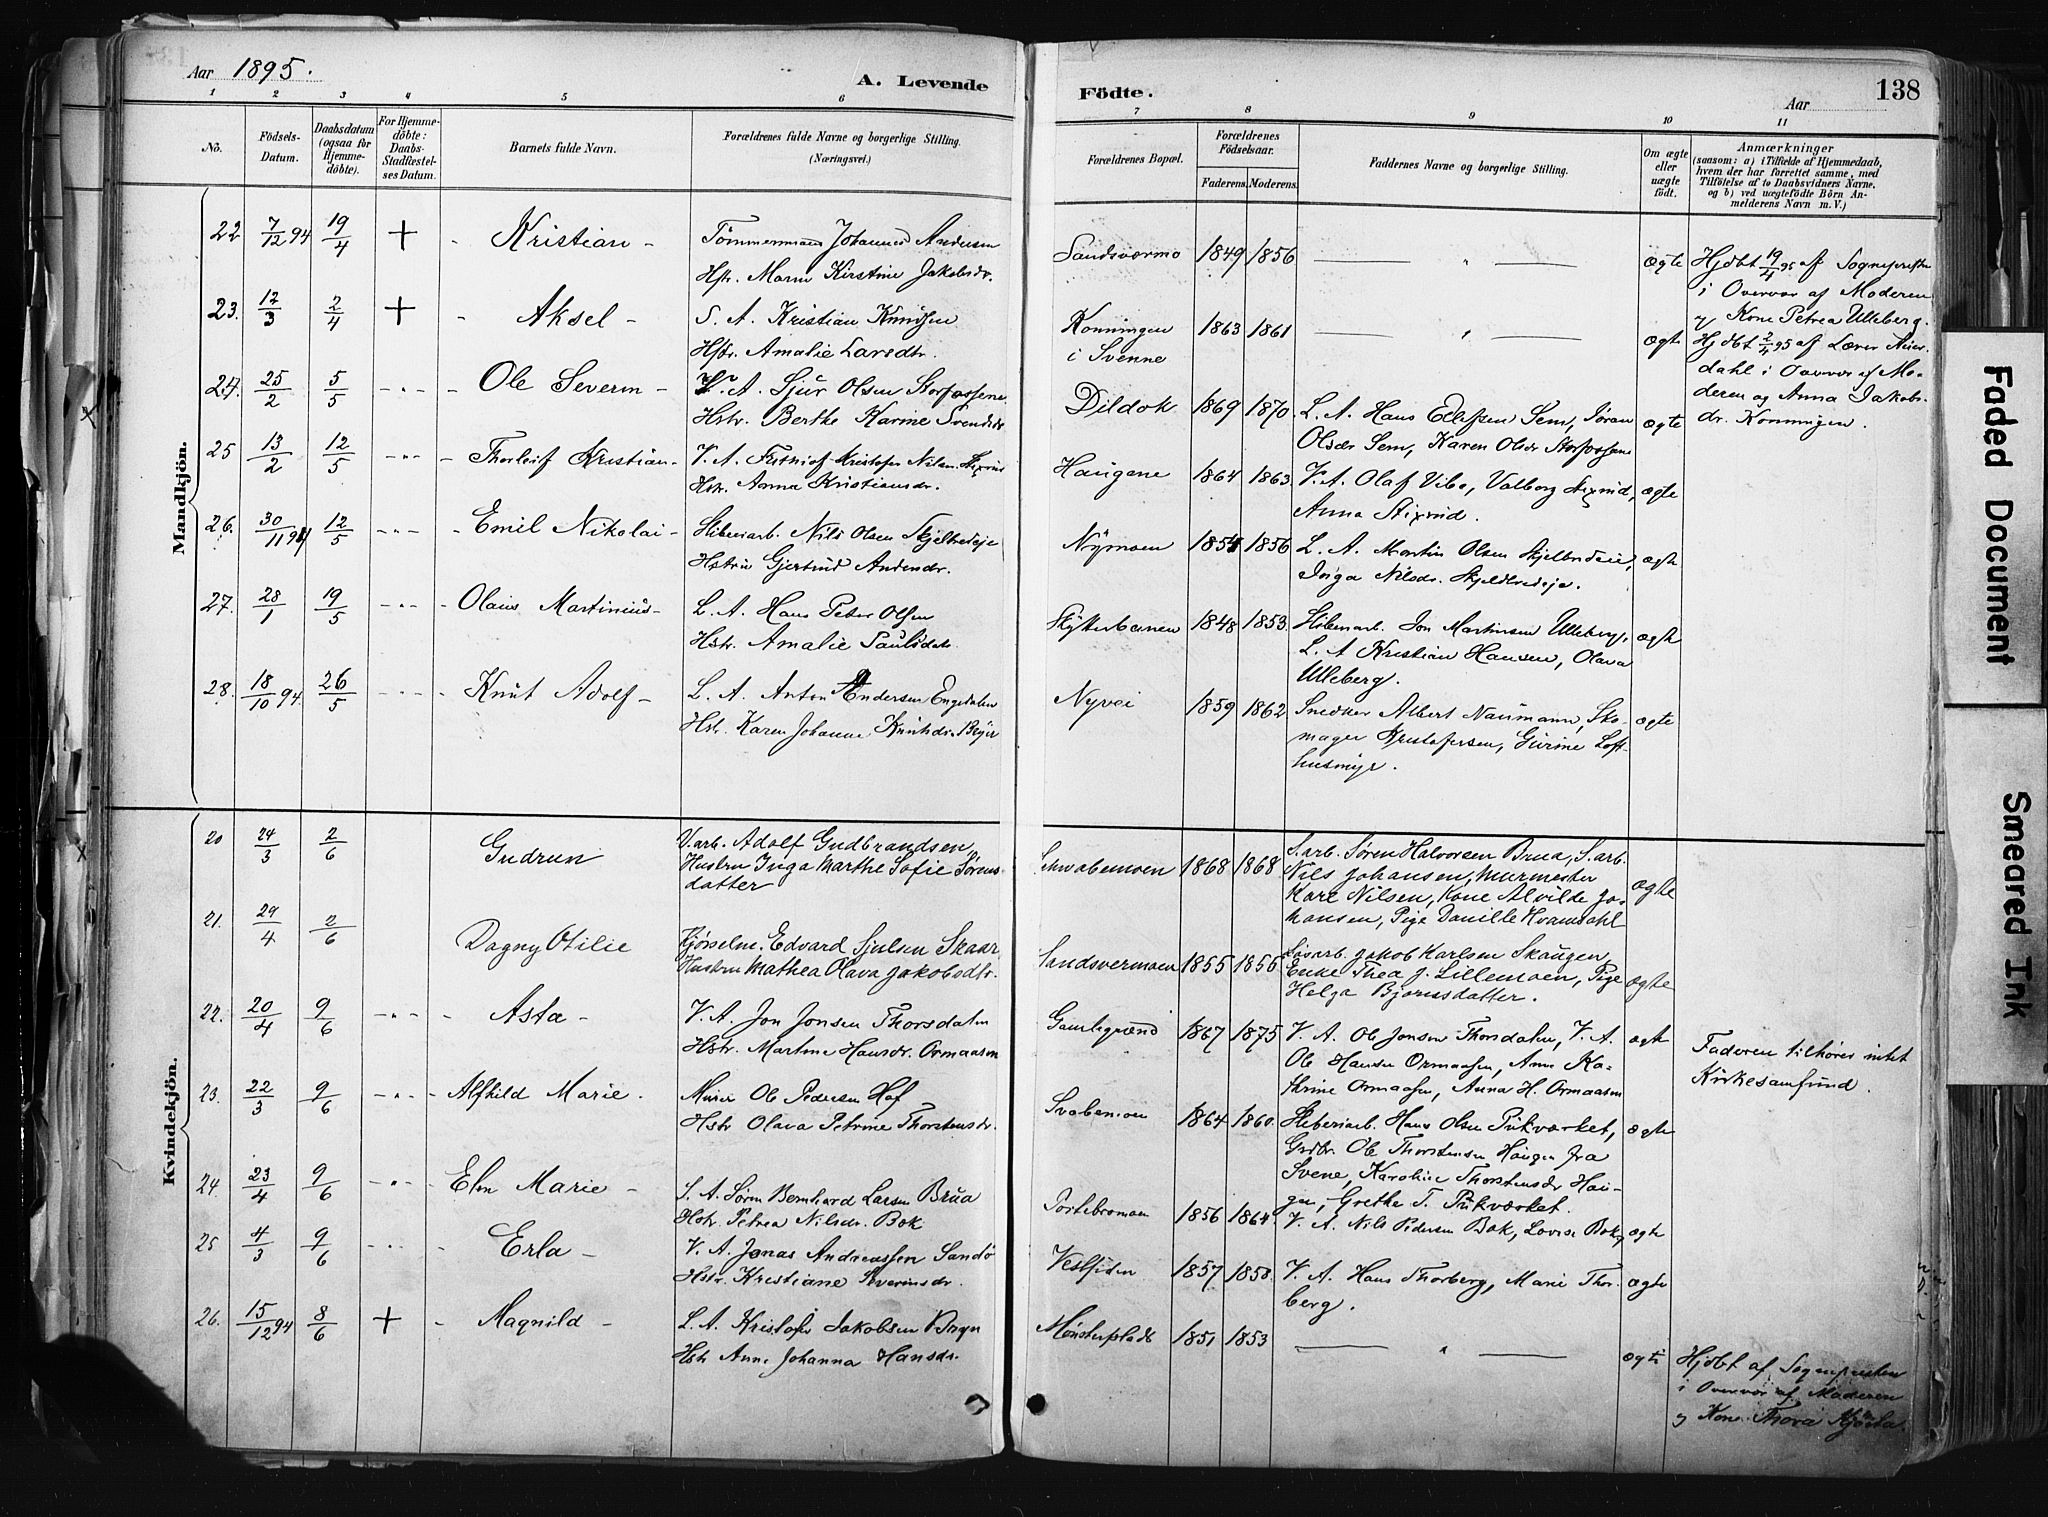 Aar 1895.
A. Levende
Födte.
Aar
138
1 2 3 4 5 6 7 8 9 10 11
No.
Födsels-
Datum.
Daabsdatum
(ogsaa for
Hjemme-
döbte).
For Hjemme-
döbte:
Daabs-
Stadfæstel-
ses Datum.
Barnets fulde Navn.
Forældrenes fulde Navne og borgerlige Stilling.
(Næringsvei.)
Forældrenes Bopæl.
Forældrenes
Födselsaar.
Faderens. Moderens.
Faddernes Navne og borgerlige Stilling.
Om ægte
eller
uægte
födt.
Anmærkninger
(saasom: a) i Tilfælde af Hjemmedaab,
hvem der har forrettet samme, med
Tilföielse af to Daabsvidners Navne,
og b) ved uægtefödte Börn An-
melderens Navn m. V.)
Mandkjön.
22 7/12 94 19/4 + - Kristian - Tömmermand Johannes Andersen
Hstr. Maren Kirstine Jakobsdr.
Sandsværmo 1849 1856 — " — ægte
Hjdbt 19/4 95 af Sognepresten
i Overvær af Moderen
og Kone Petrea Ulleberg.
23. 12/3 2/4 + - Aksel - S. A. Kristian Knudsen
Hstr. Amalie Larsdtr.
Konningen
i Svenne
1863 1861 — " — ægte
Hjdbt 2/4 95 af Lærer Neier-
dahl i Overvær af Mo-
deren og Anna Jakobs-
dr. Konningen.
24. 25/2 5/5 - " - Ole Severin - V. A. Sjur Olsen Storfossene
Hstr. Berthe Karine Svendsdr
Dildok 1869 1870 L. A. Hans Edefsen Sem, Jöran
Olsdr Sem, Karen Olsdr Storfossene
ægte
25 13/2 12/5 - " - Thorleif Kristian - V. A. Frithiof Kristofer Nilsen Stixrud
Hstr. Anna Kristiansdr.
Haugene 1864 1863 V. A. Olaf Vibe, Valborg Stixrud,
Anna Stixrud.
ægte
26. 30/11 94 12/5 - " - Emil Nikolai - Sliberiarb. Nils Olsen Skjelbredeje
Hstru Gjertrud Andersdr.
Nymoen 1854 1856 L. A. Martin Olsen Skjelbredeie,
Inga Nilsdr. Skjeldbredeje.
ægte
27. 28/1 19/5 - " - Olaus Martinius - L. A. Hans Peter Olsen
Hstr. Amalie Paulsdatr.
Skytterbanen 1848 1853. Sliberiarb. Jon Martinsen Ulleberg,
L. A Kristian Hansen, Olava
Ulleberg.
ægte
28. 18/10 94. 26/5 - " - Knut Adolf - L. A. Anton Andersen Engedalen
Hstr. Karen Johanne Knutsdr. Bejer
Nyvei 1859 1862 Snedker Albert Naumann, Sko-
mager Kristofersen, Gurine Loft-
husmyr.
ægte
Kvindekjön.
20 24/3 2/6 Gudrun V.arb. Adolf Gudbrandsen,
Hustru Inga Marthe Sofie Sörens-
datter
Schwabemoen 1868 1868 S.arb. Sören Halvorsen Brua, S.arb.
Nils Johansen, Murmester
Karl Nilsen, Kone Alvilde Jo-
hansen, Pige Danille Hvamdahl
ægte
21. 29/4 2/6 Dagny Otilie Kjörselm. Edvard Sjulsen Skaar,
Hustru Mathea Olava Jakobsdtr.
Sandsvermoen 1855 1856 Løsarb. Jakob Karlsen Skaugen,
Enke Thea J. Lillemoen, Pige
Helga Bjornsdatter.
ægte
22. 20/4 9/6 - " - Asta - V. A. Jon Jonsen Thorsdalen
Hstr. Martine Hansdr. Ormaasen
Gamlegrænd 1867 1875 V. A. Ole Jonsen Thorsdalen, V. A.
Ole Hansen Ormaasen, Anne Ka-
thrine Ormaasen, Anna H. Ormaasen
ægte
Faderen tilhører intet
Kirkesamfund.
23. 22/3 9/6 - " - Alfhild Marie. Murer Ole Pedersen Hof
Hstr Olava Petrine Thorstensdr.
Svabemoen 1864 1860. Sleberiarb. Hans Olsen Pukværket,
Grdbr. Ole Thorstensen Haugen fra
Svene, Karoline Thorstensdr Hau-
gen, Grethe T. Pukværket.
ægte
24 23/4 9/6 - " - Elen Marie - S. A. Sören Bernhard Larsen Brua
Hstr. Petrea Nilsdr. Bok
Portebromoen 1856 1864. V. A. Nils Pedersen Bok, Lovise Bok, ægte
25 4/3 9/6 - " - Erla - V. A. Jonas Andreassen Sandö
Hstr. Kristiane Severinsdr.
Vestsiden 1857 1858. V. A. Hans Thorberg, Marie Thor-
berg.
ægte
26. 15/12 94 8/6 + - Magnild - L. A. Kristofer Jakobsen Bryn
Hstr Anne Johanna Hansdr.
Mønsterplads 1851 1853 — " — ægte
Hjdbt af Sognepresten
i Overvær af Moderen
og Kone Thora
Faded Document
Smeared Ink